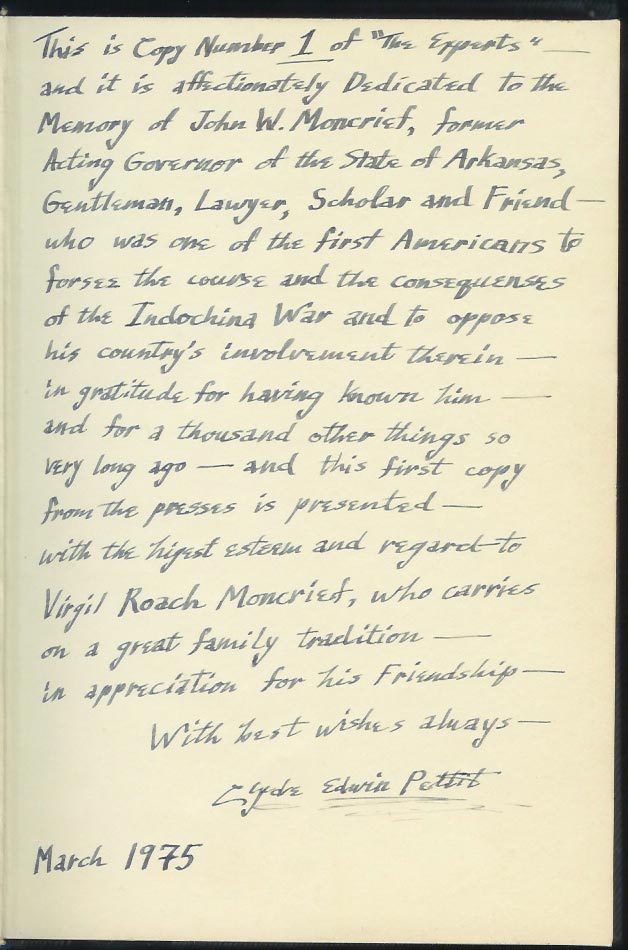 This is Copy Number 1 of "The Experts" —
and it is affectionately Dedicated to the
Memory of John W. Moncrief, former
Acting Governor of the State of Arkansas,
Gentleman, Lawyer, Scholar and Friend —
who was one of the first Americans to
forsee the course and the consequenses
of the Indochina War and to oppose
his country's involvement therein —
in gratitude for having known him —
and for a thousand other things so
very long ago — and this first copy
from the presses is presented —
with the higest esteem and regard to
Virgil Roach Moncrief, who carries
on a great family tradition —
in appreciation for his Friendship —
With best wishes always —
Clyde Edwin Pettit
March 1975